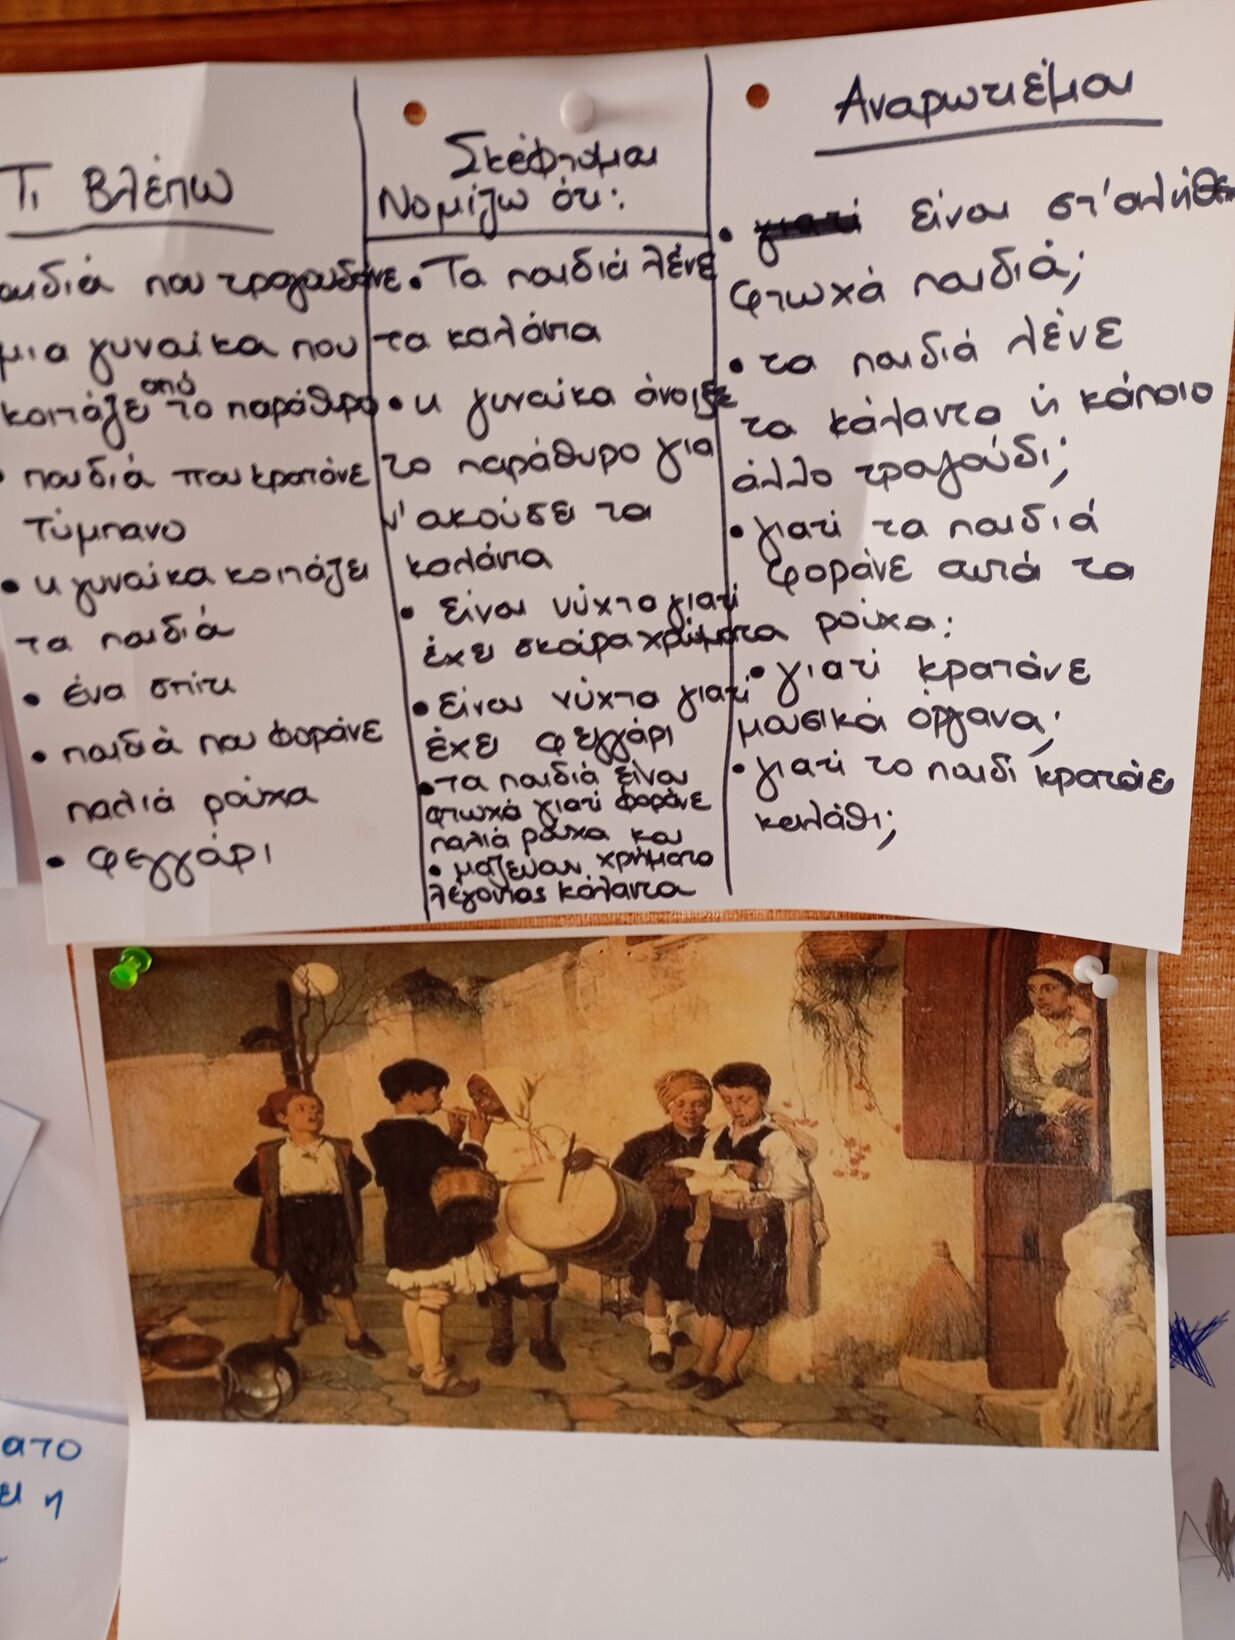 Τι Βλέπω
παιδιά που τραγουδάνε
μια γυναίκα που
κοιτάζει από το παράθυρο
• παιδιά που κρατάνε
τύμπανο
• η γυναίκα κοιτάζει
τα παιδιά
• ένα σπίτι
• παιδιά που φοράνε
παλιά ρούχα
• φεγγάρι
Σκέφτομαι
Νομίζω ότι:
• Τα παιδιά λένε
τα κάλαντα
• η γυναίκα άνοιξε
το παράθυρο για
ν' ακούσει τα
κάλαντα
• είναι νύχτα γιατί
έχει σκούρα χρώματα
• είναι νύχτα γιατί
έχει φεγγάρι
• τα παιδιά είναι
φτωχά γιατί φοράνε
παλιά ρούχα και
• μάζευαν χρήματα
λέγοντας κάλαντα
Αναρωτιέμαι
• γιατί είναι στ' αλήθεια
φτωχά παιδιά;
• τα παιδιά λένε
τα κάλαντα ή κάποιο
άλλο τραγούδι;
• γιατί τα παιδιά
φοράνε αυτά τα
ρούχα;
• γιατί κρατάνε
μουσικά όργανα;
• γιατί το παιδί κρατάει
καλάθι;